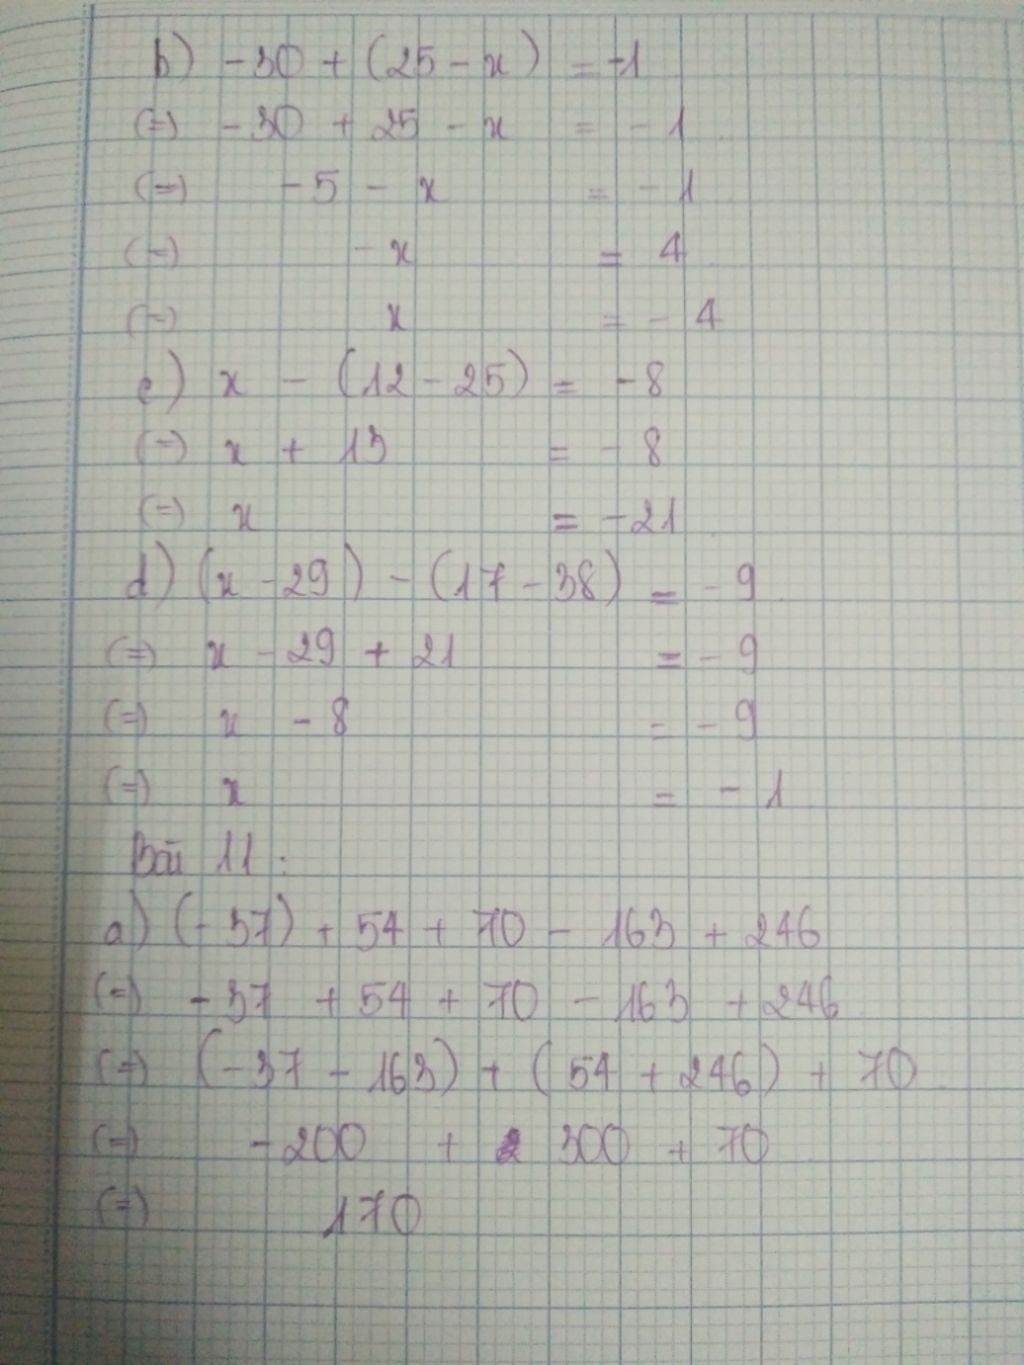 b) -30 + (25 - x) = -1
(=) -30 + 25 - x = - 1
(=) -5 - x = - 1
(=) -x = 4
(=) x = - 4
c) x - (12 - 25) = -8
(=) x + 13 = - 8
(=) x = -21
d) (x - 29) - (17 - 38) = - 9
(=) x - 29 + 21 = - 9
(=) x - 8 = - 9
(=) x = - 1
Bài 11 :
a) (- 37) + 54 + 70 - 163 + 246
(=) - 37 + 54 + 70 - 163 + 246
(=) (-37 - 163) + (54 + 246) + 70
(=) -200 + 300 + 70
(=) 170